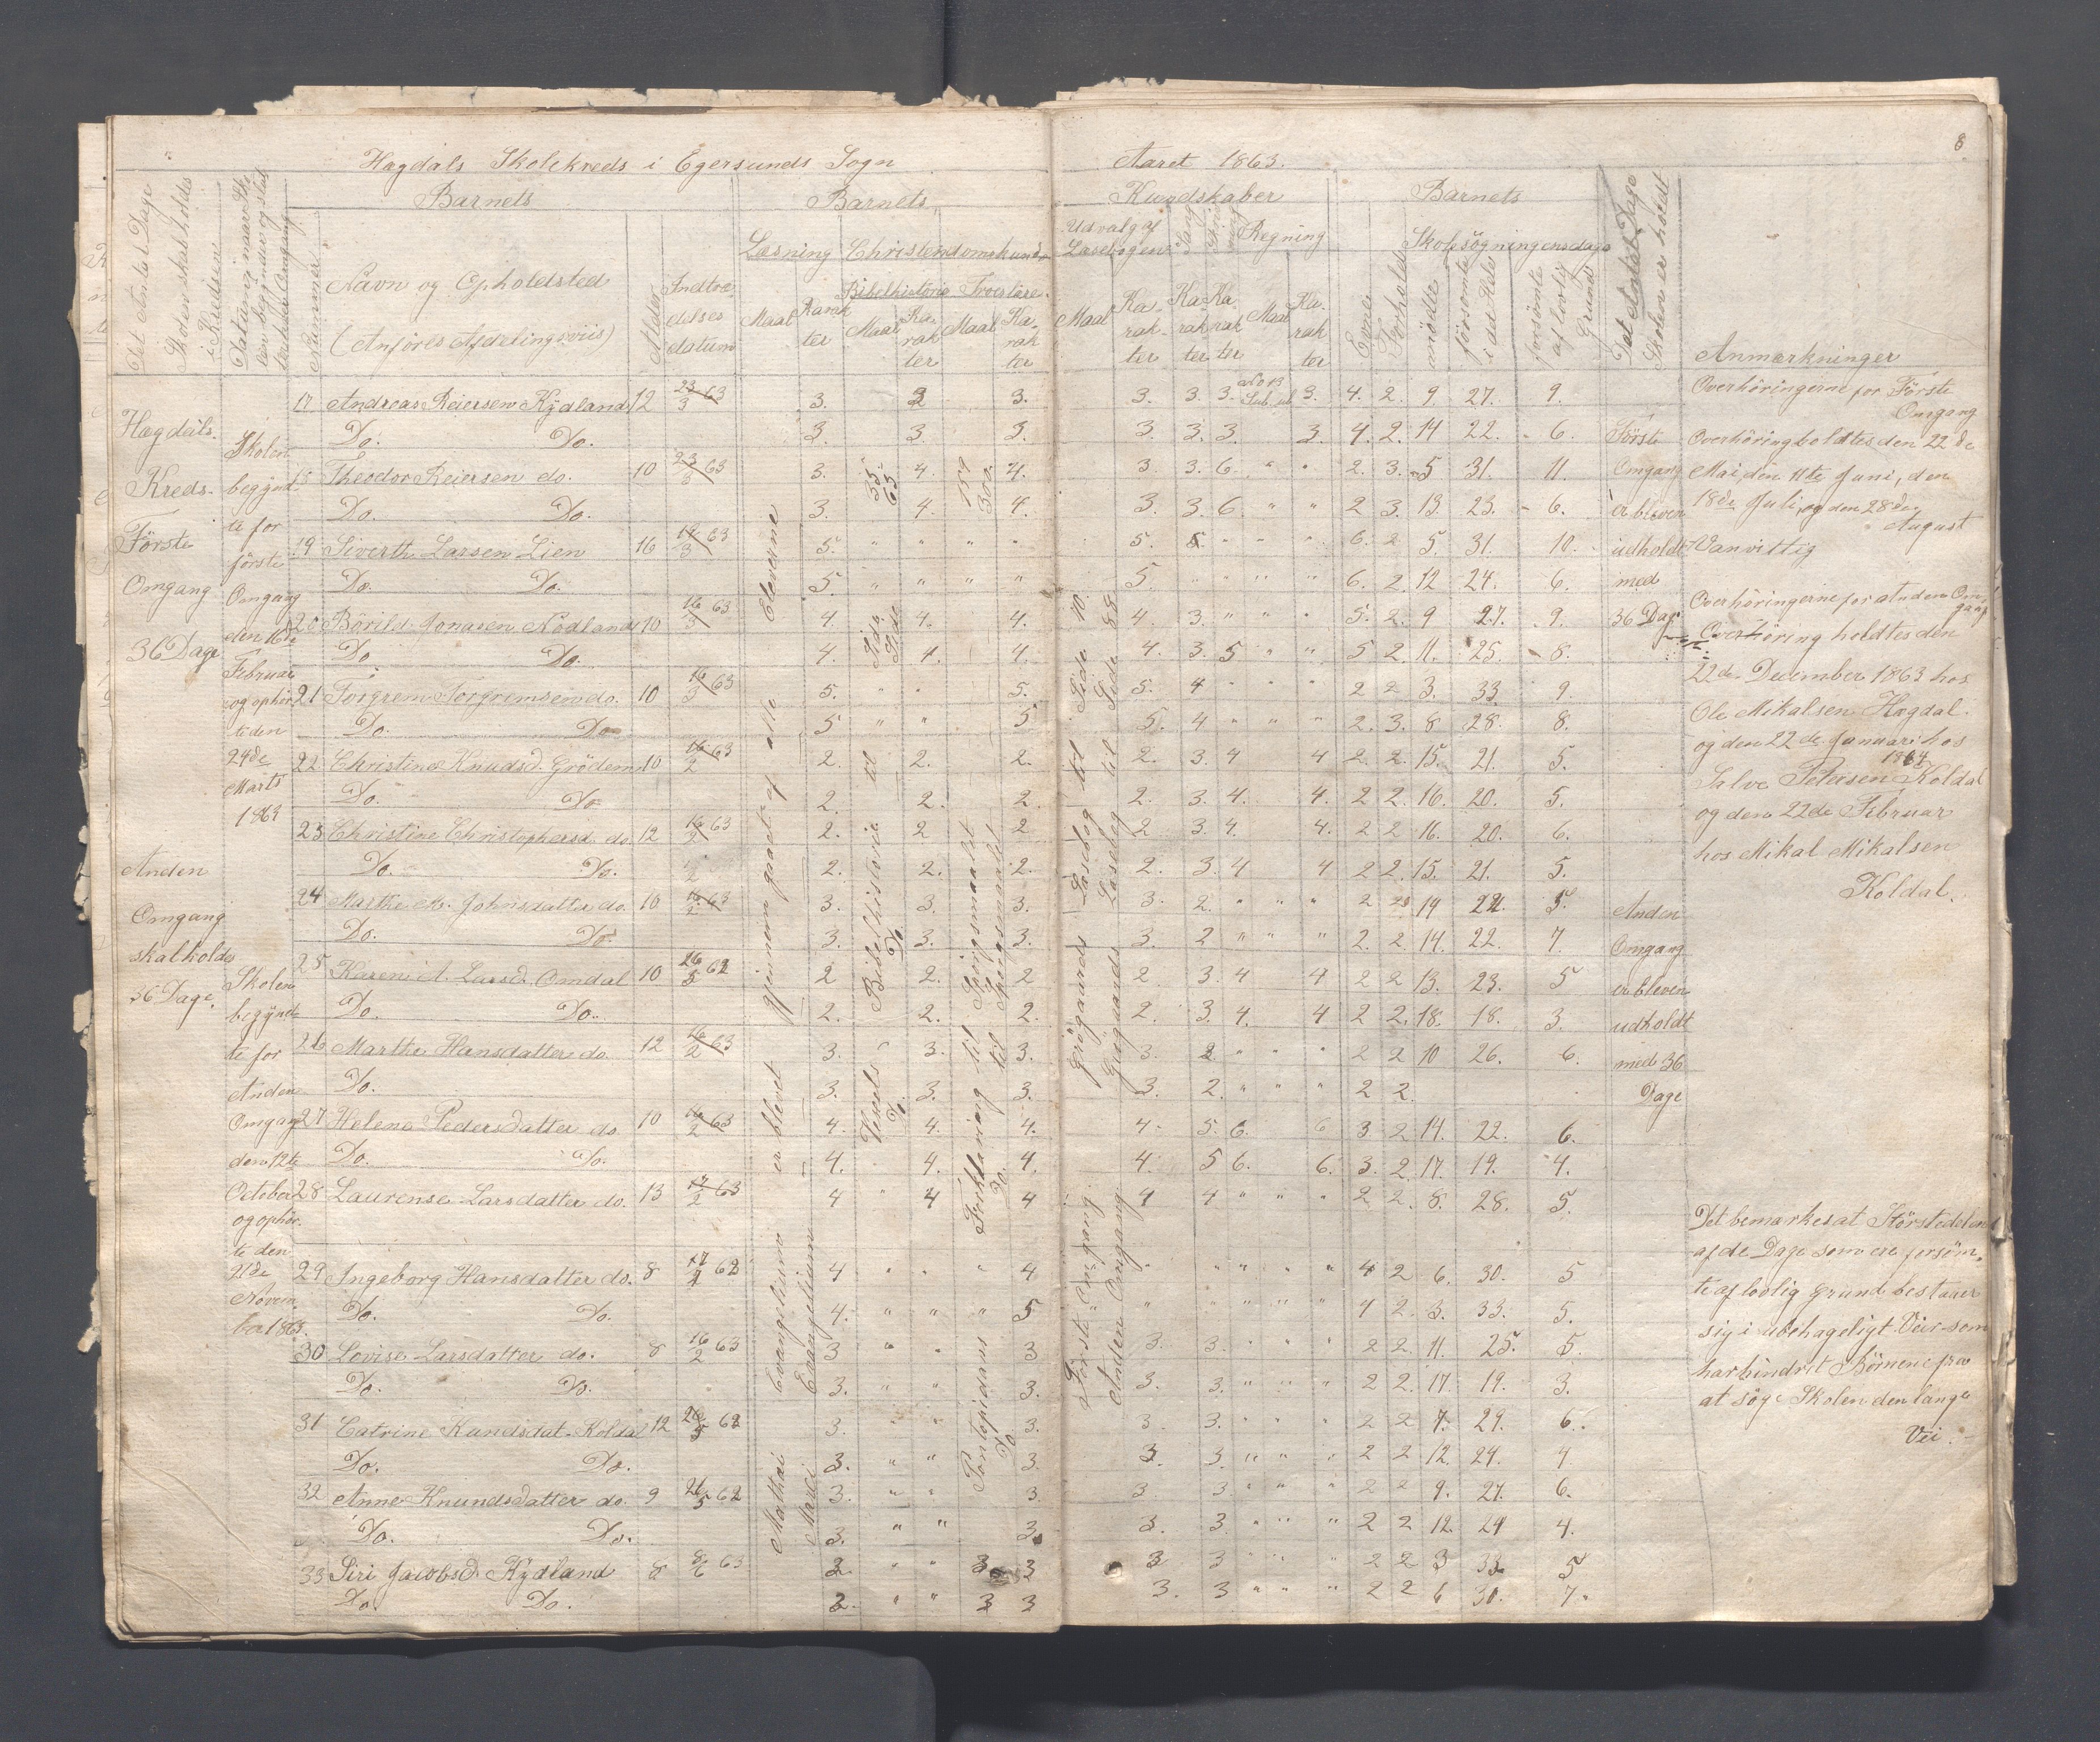 8
Hægdals Skolekreds i Egersunds Sogn Aaret 1863.
Det Antal Dage Skolen skal holdes i Kredsen
Datum, naar Skolen begynder og slutter hver Omgang
Nummer
Barnets
Navn og Opholdsted
(Anføres Afdelingsviis)
Alder
Indtrædelses datum
Barnets Kundskaber
Læsning Christendomskundskab
Maal Karakter
Bibelhistorie Troeslære
Maal Karakter Maal Karakter
Udvalg af Læsebogen
Maal Karakter
Sang Skrivning Regning
Karakter Karakter Maal Karakter
Barnets
Evner Forhold
Skolesøgningensdage
mødte forsømte i det Hele forsømte af lovlig Grund
Det Antal Dage Skolen er holdt
Anmærkninger
Hægdals
Kreds
Første
Omgang
36 Dage
Anden
Omgang
skal holdes
36 Dage.
Skolen
begynd-
te for
første
Omgang
den 16de
Februar
og ophør-
te den
24de
Marts
1863
Skolen
begynd-
te for
Anden
Omgang
den 12te
October
og ophør-
te den
21de
Novem-
ber 1863.
17 Andreas Reiersen Kydland 12 23/3 63 3. 2 3. 3. 3. 3. No 13 Sub. ... 3. 4. 2. 9 27. 9.
Do. Do. 3. 3. 3. 3. 3. 3. 3. 4. 2. 14 22. 6.
18 Theodor Reiersen do. 10 23/3 63 3. 4. 4. 3. 3. 6. " " 2. 3. 5 31. 11.
Do. Do. 3. 4. 4. 3. 3. 6. " " 2 3. 13. 23. 6.
19 Siverth Larsen Lien 16 19/3 63 5. " " " " 5. 5. " " " 6. 2 5. 31. 10.
Do. Do. 5. " " " " 5. " " " " 6. 2. 12 24. 6.
20 Børild Jonasen Nodland 10 16/3 63 4. 4. 4. 4. 3. " " " 5. 2. 9 27. 9.
Do Do. 4. 4. 4. 4. 3. 5 " " 5 2. 11. 25. 8.
21 Torgrem Torgremsen do. 10 16/3 63 5. " " 5. 5. 4 " " " 2 2 3. 33 9.
Do. Do 5 " " 5 5. 4 " " " 2. 3. 8 28. 8.
22 Christina Knudsd. Grødem 10 16/2 63 2. 2. 2. 2. 3. 4 4 2. 2. 15. 21. 5.
Do. Do 2. 2. 2. 2. 3. 4. 4. 2 2. 16. 20. 5.
23 Christine Christophersd. do. 12 16/2 63 2. 2 2 2 3. 4. 4. 2 2 16. 20. 6.
Do. Do. 2. 2. 2. 2. 3. 4 4 2 2. 15. 21. 5.
24 Marthe M. Johnsdatter do. 10 16/2 63 3. 3. 3. 3. 2. " " " 2 2 14 22. 5.
Do. Do. 3. 3. 3. 3. 2 " " " 2. 2. 14. 22. 7.
25 Karen A. Larsd. Omdal 10 26/5 62 2 2. 2 2 3. 4 4 2 2 13. 23. 5
Do. Do. 2. 2. 2. 2. 3. 4. 4 2 2. 18. 18. 3.
26 Marthe Hansdatter do. 12 16/2 63 3. 3. 3. 3. 2 " " " 2 2 10 26. 6.
Do. 3. 3. 3. 3. 2. " " " 2 2.
27 Helene Pedersdatter do. 10 16/2 63 4. 4. 4. 4. 5. 6. 6 3 2 14. 22. 6.
Do. Do. 4. 4. 4. 4. 5 6. 6. 3. 2. 17. 19. 4.
28 Laurense Larsdatter do. 13 17/2 63 4 4 4 4 4 " " " 2 2. 8. 28. 5.
29 Ingeborg Hansdatter do. 8 17/2 62 4 " " " 4 " " " " " 4 2 6. 30. 5
Do. Do. 4. " " " 5 " " " " " 4 2. 3. 33. 5.
30 Lovise Larsdatter do. 8 16/2 63 3 " " 3 3. 3. " " " 2 2. 11. 25. 5.
Do. Do. 3. " " 3. 3. 3. " " " 2 2. 17. 19. 3.
31 Catrine Knudsdat. Koldal 12 26/5 62 3. " " 3. 3 3. " " " 2 2 7. 29. 6.
Do. Do. 3. " " 3. 3. 3. " " " 2 2 12. 24. 4
32 Anne Knundsdatter do. 9 26/5 62 3. " " 3. 3 3. " " " 2 2 9. 27. 6.
Do. Do. 3. " " 3. 3. 3. " " " 2 2 12. 24 4.
33 Siri Jacobsd. Kydland 8 8/6 63 2. " " 3. 3 3 3 " " " 2 2 3 33. 5
Do. Do. 2. " " 3 3 3. 3 " " " 2 2 6 30. 7.
Mathæi Evangelium er blevet gjennemgaaet af alle Eleverne
Marci Evangelium
Vexels Bibelhistorie til Side 35
Do. Do. Side 65
Pontopidans Forklaring til Spørgsmaalet
Do. Do. til Spørgsmaalet 300.
Første Omgang Grøgaards Læsebog til Side 40.
Anden Omgang Grøgaards Læsebog til Side 88
Første
Omgang
er bleven
udholdt
med
36 Dage
Anden
Omgang
er bleven
udholdt
med 36
Dage
Overhøringerne for Første
Omgang
Overhøring holdtes den 22de
Mai, den 11te Juni, den
18de Juli, og den 28de
August
Vanvittig
Overhøringerne for Anden Om-
gang
Overhøring holdtes den
22de December 1863 hos
Ole Mikalsen Hægdal.
og den 22de Januar hos
1864
Salve Petersen Koldal
og den 22de Februar
hos Mikal Mikalsen
Koldal.
Det bemærkes at Størstedelen
af de Dage som ere forsøm-
te af lovlig Grund bestaaer
sig i ubehageligt Veir som
har hindret Børnene fra
at søge Skolen den lange
Vei.